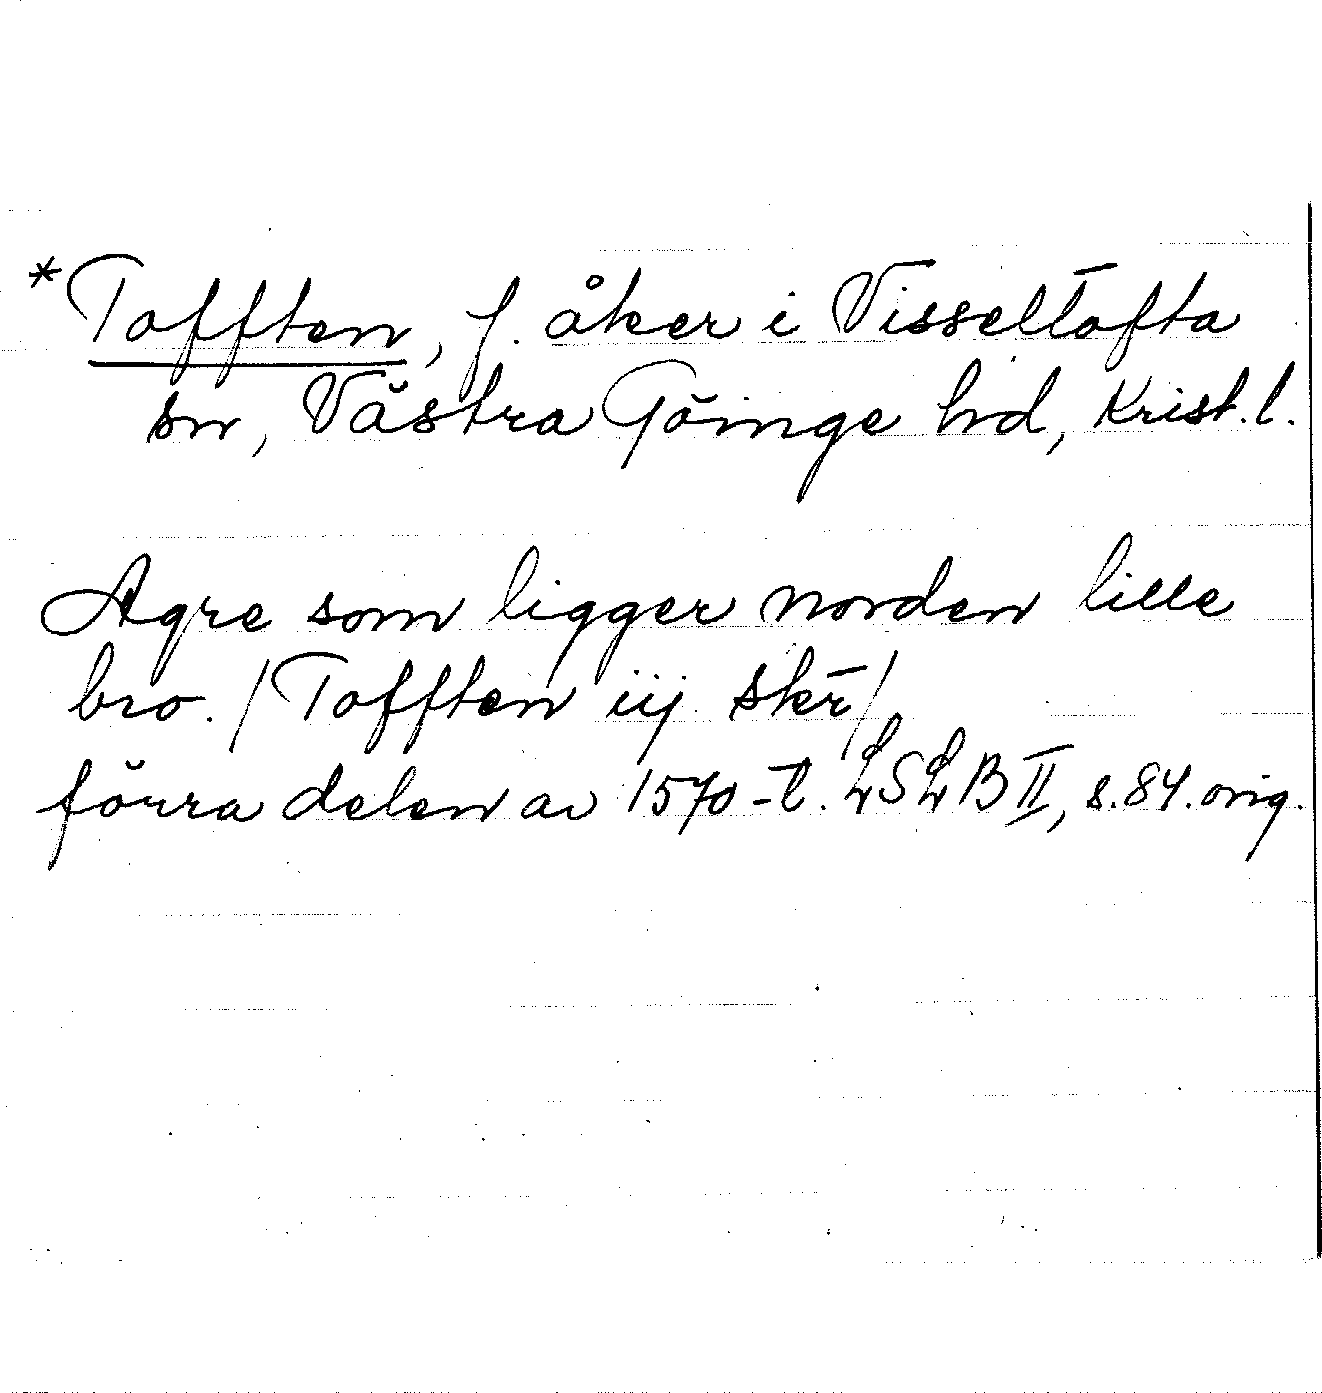 *Tofften, f. åker i Visseltofta
sn, Västra Göinge hd, Krist. l.
Agre som ligger norden lille
bro. / Tofften iij skr̄ /
förra delen av 1570-t. LSLB II, s. 84. orig.